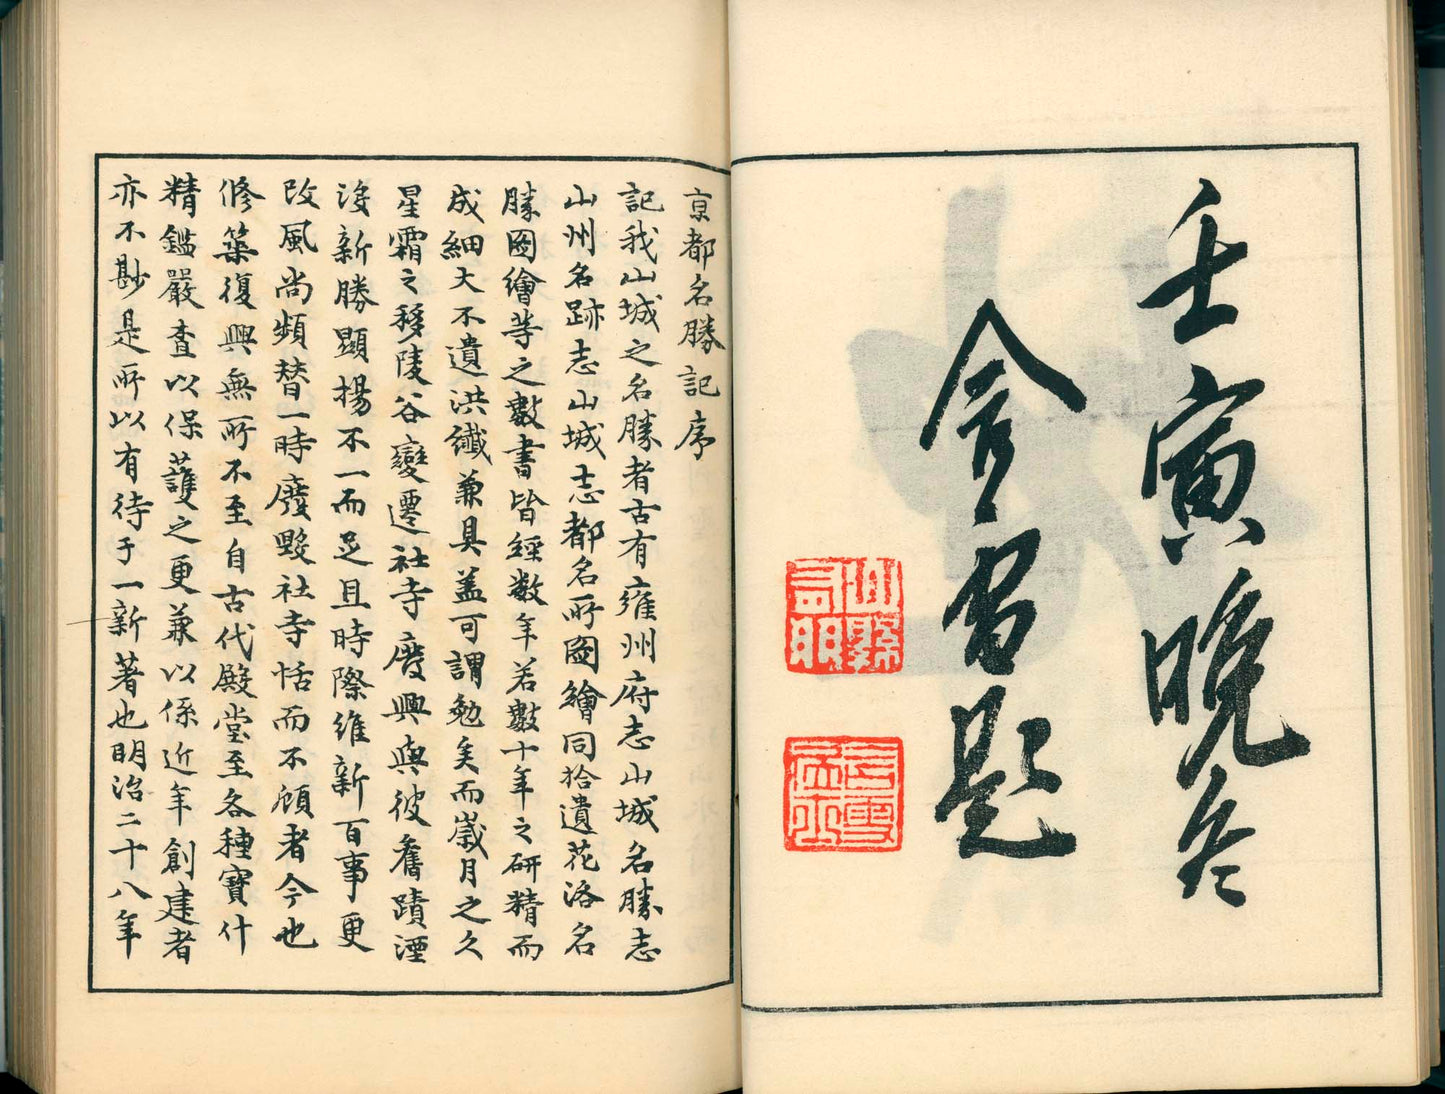 壬寅晩冬
題
京都名勝記序
記我山城之名勝者古有雍州府志山城名勝志
山州名跡志山城志都名所圖繪同拾遺花洛名
勝圖繪等之數書皆經數年若數十年之研精而
成細大不遺洪纖兼具盖可謂勉矣而歳月之久
星霜之移陵谷變遷社寺廢興與彼舊蹟湮
沒新勝顯揚不一而足且時際維新百事更
改風尚頻替一時廢毀社寺恬而不顧者今也
修築復興無所不至自古代殿堂至各種寶什
精鑑嚴査以保護之更兼以係近年創建者
亦不尠是所以有待于一新著也明治二十八年